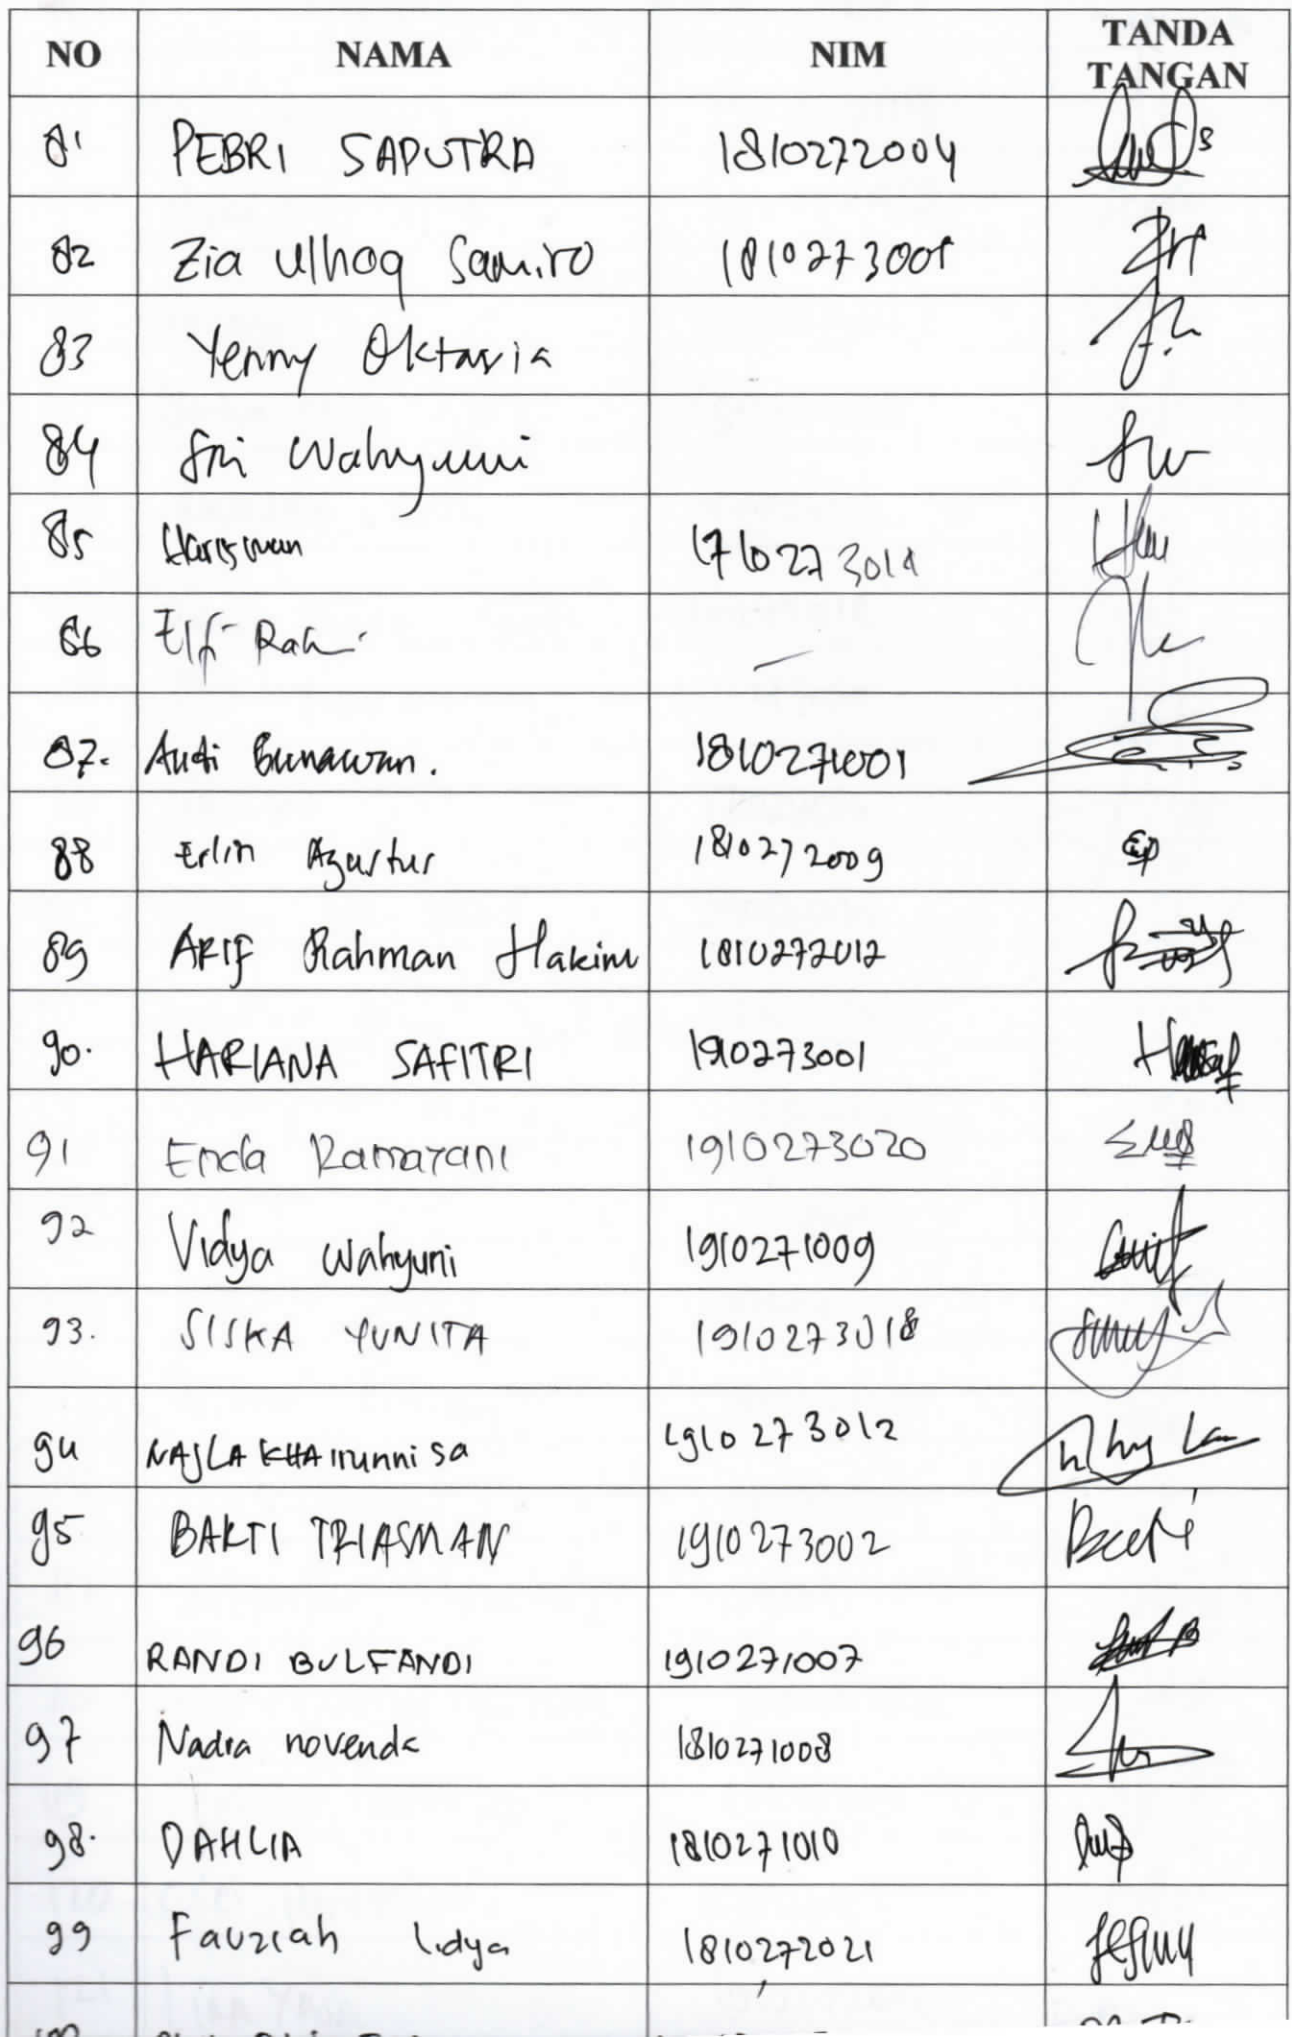 NO NAMA NIM TANDA TANGAN
81 PEBRI SAPUTRA 1810272004
82 Zia Ulhaq Samiro
83 Yenny Oktavia
84 Sri Wahyuni
85 Harisman
86 Elf
87. Budi Gunawan. 1810271001
88 Erlin Agustur 1810272009
89 ARIF Rahman Hakim 1810272012
90. HARIANA SAFITRI 1910273001
91 Enda Ramayani 1910273020
92 Vidya Wahyuni 1910271009
93. SISKA YUNITA 1910273018
94 NAJLA KHAirunnisa 1910273012
95 BAKTI TRIASMAN 1910273002
96 RANDI BULFANDI 1910271007
97 Nadra novenda 1810271008
98. DAHLIA 1810271010
99 Fauziah Lidya 1810272021